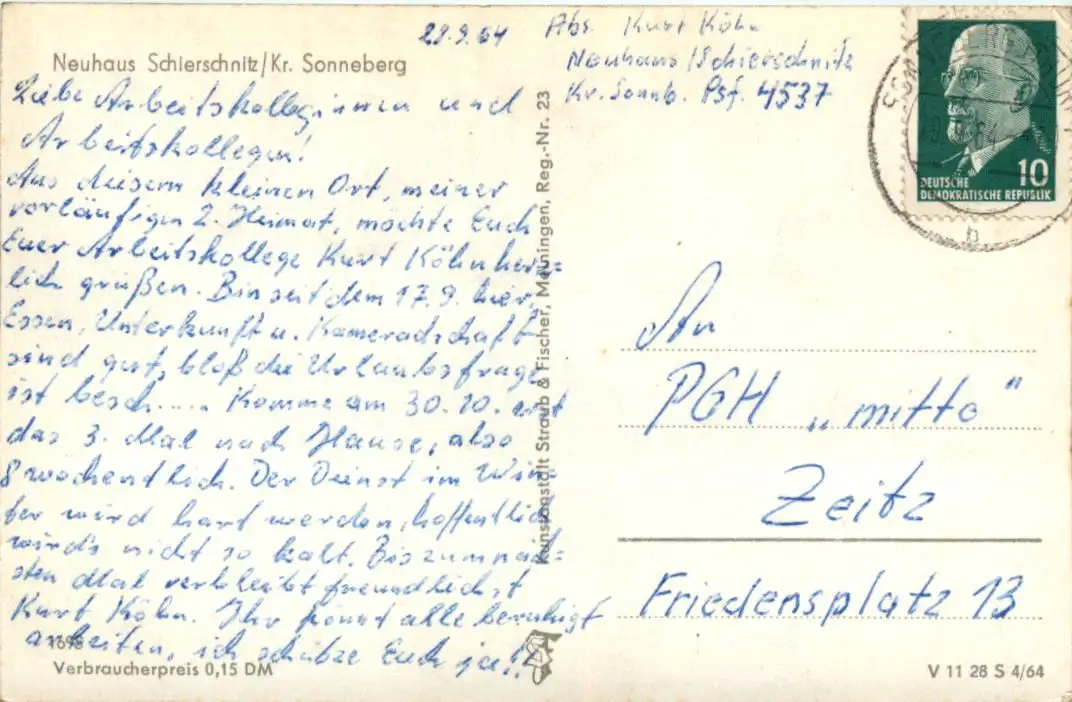 28.9.64
Abs. Kurt Köhn
Neuhaus/Schierschnitz
Kr. Sonnb. Psf. 4537
Neuhaus Schierschnitz/Kr. Sonneberg
Liebe Arbeitskolleginnen und
Arbeitskollegen!
Aus diesem kleinen Ort, meiner
vorläufigen 2. Heimat, möchte Euch
Euer Arbeitskollege Kurt Köhn herz=
lich grüßen. Bin seit dem 17.9. hier,
Essen, Unterkunft u. Kameradschaft
sind gut, bloß die Urlaubsfrage
ist besch..... Komme am 30.10. erst
das 3. Mal nach Hause, also
8 wochentlich. Der Dienst im Win=
ter wird hart werden, hoffentlich
wird's nicht so kalt. Bis zum näch=
sten Mal verbleibt freundlichst
Kurt Köhn. Ihr könnt alle beruhigt
arbeiten, ich schütze Euch ja!!
1698
Verbraucherpreis 0,15 DM
Kunstanstalt Straub & Fischer, Meiningen, Reg.-Nr. 23
DEUTSCHE
DEMOKRATISCHE REPUBLIK
10
b
An
PGH „mitte"
Zeitz
Friedensplatz 13
V 11 28 S 4/64